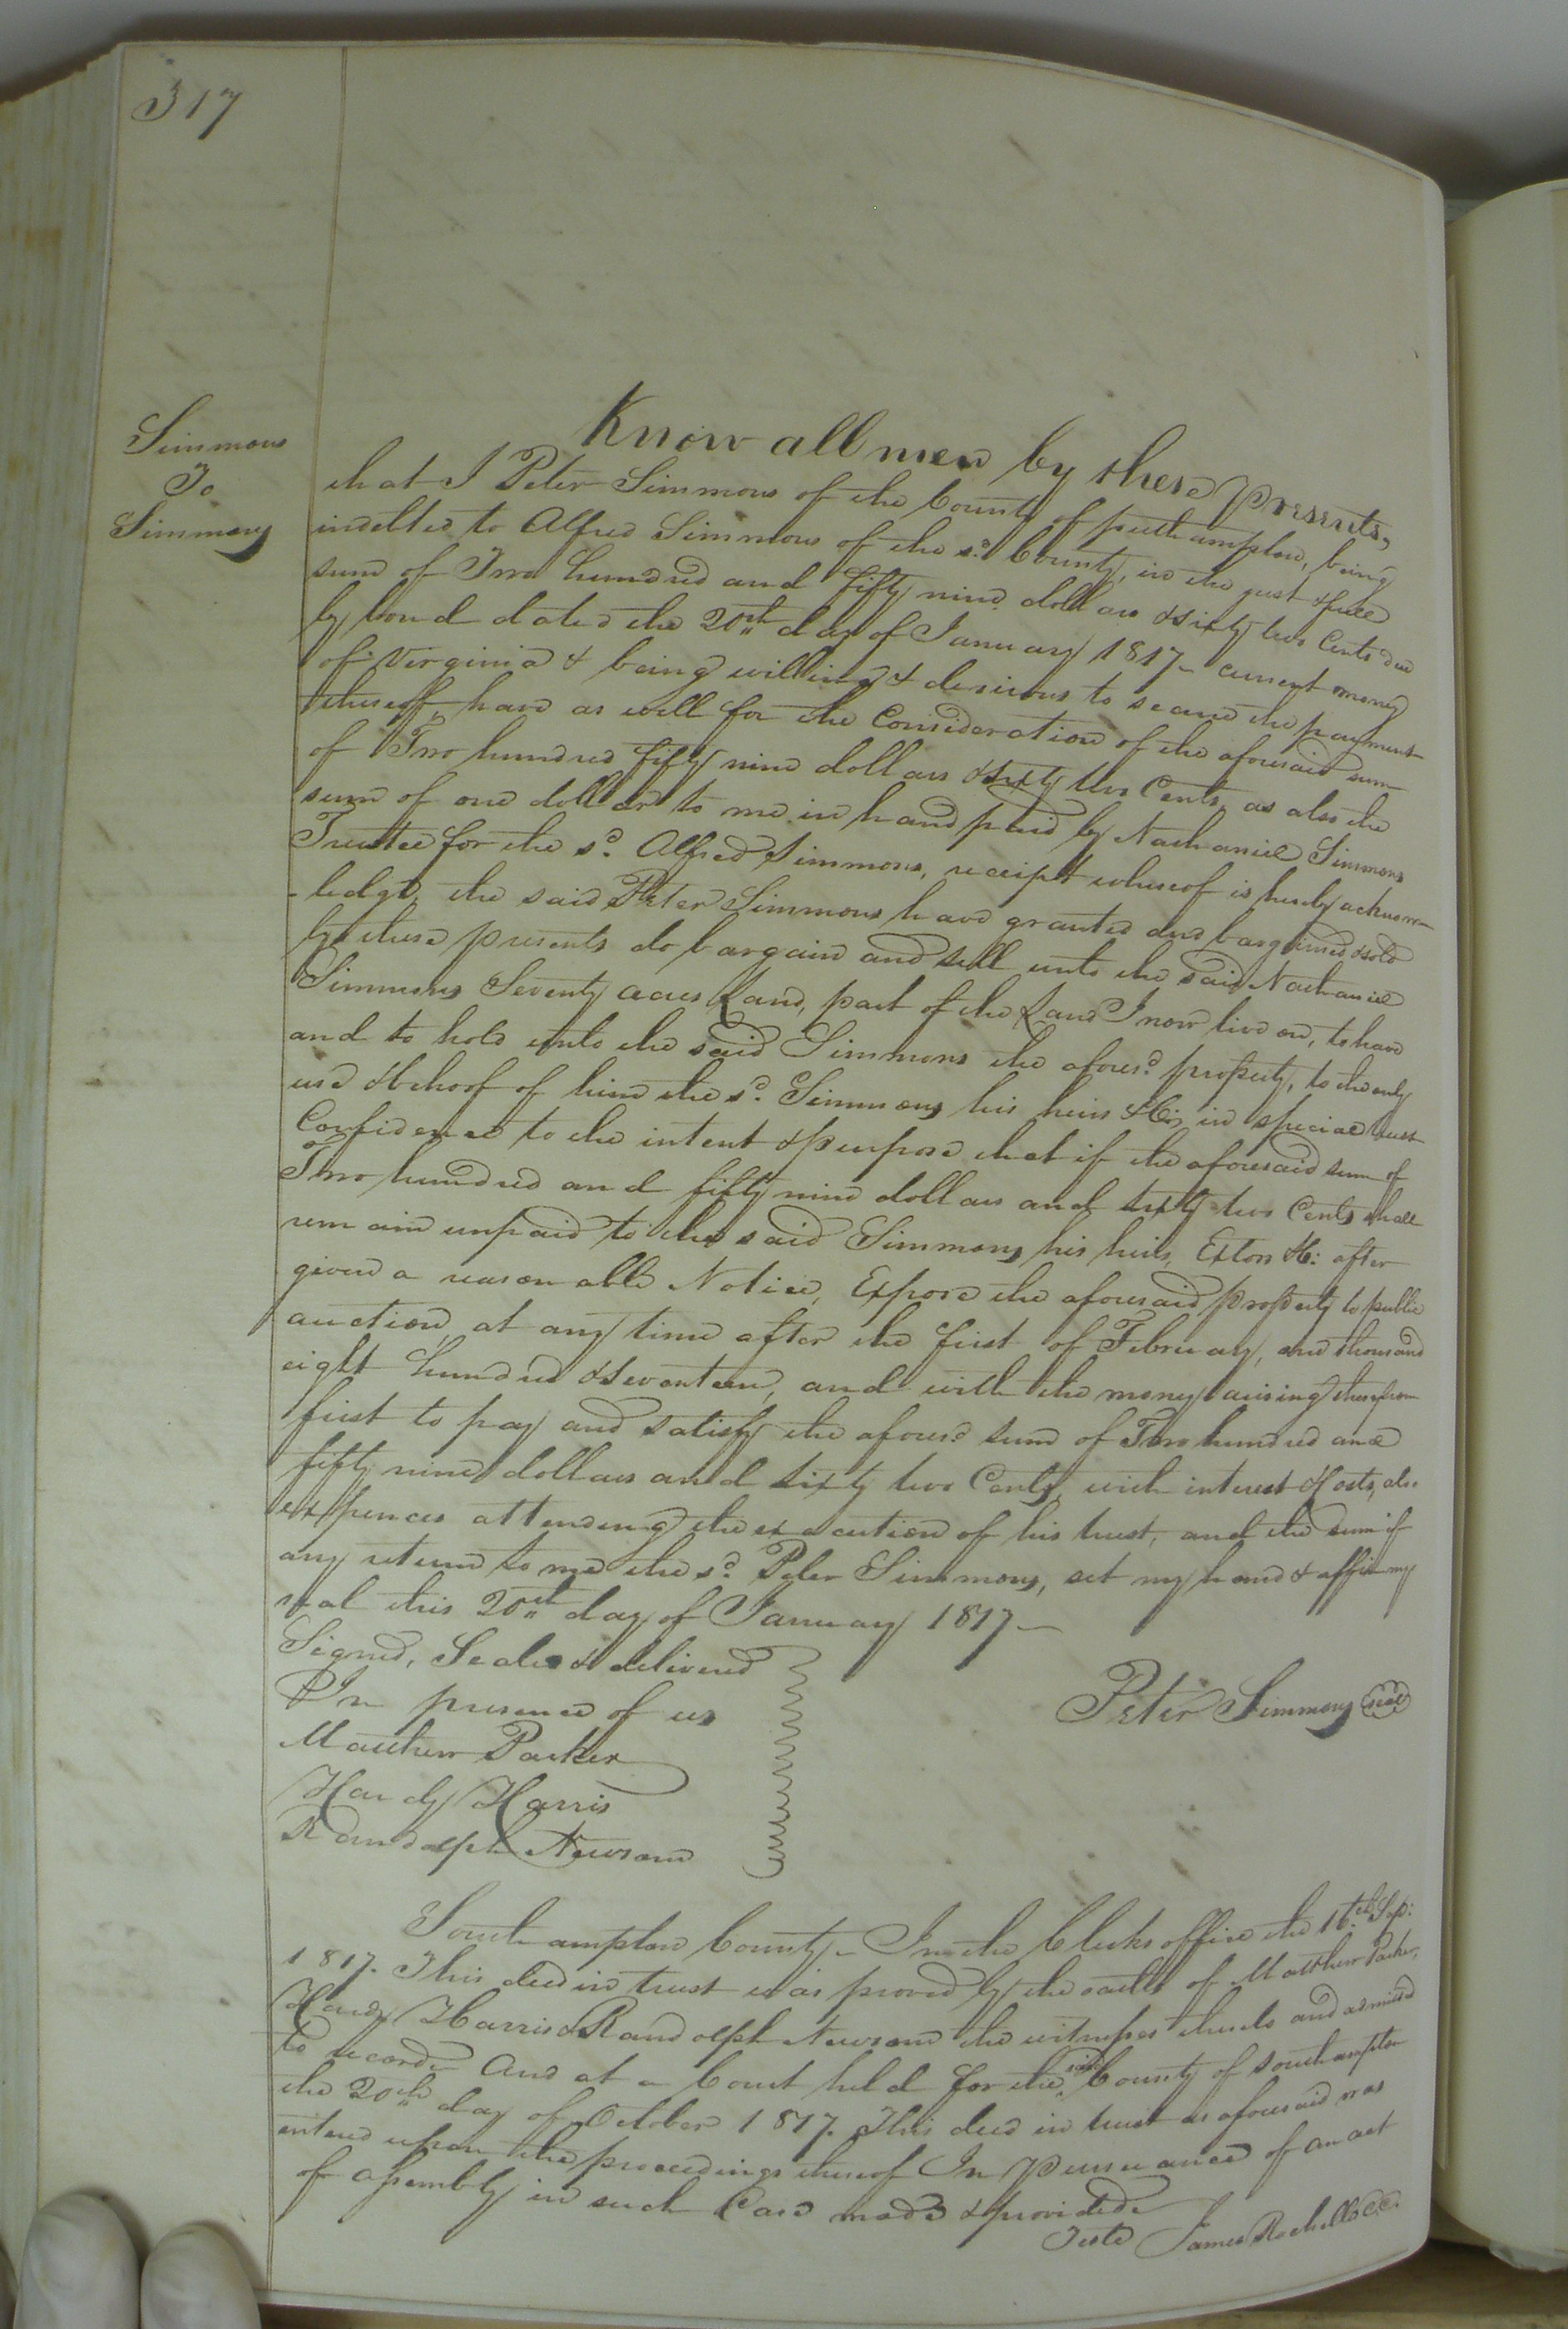 317
Simmons
To
Simmons
Know all men by these Presents,
that I Peter Simmons of the County of Southampton, being
indebted to Alfred Simmons of the sd. County, in the just & full
sum of Two hundred and fifty nine dollars & sixty two Cents due
by bond dated the 20th day of January 1817 - current money
of Virginia & being willing & desirous to secure the payment
thereof, have as well for the Consideration of the aforesaid sum
of Two hundred fifty nine dollars & sixty two Cents, as also the
sum of one dollar to me in hand paid by Nathaniel Simmons
Trustee for the sd. Alfred Simmons, receipt whereof is hereby acknow-
-ledgd, the said Peter Simmons have granted and bargained & sold
by these presents do bargain and sell unto the said Nathaniel
Simmons Seventy acres Land, part of the Land I now live on, to have
and to hold unto the said Simmons the aforesd. property, to the only
use & behoof of him the sd. Simmons his heirs &c; in special trust
Confidence to the intent & purpose that if the aforesaid sum of
Two hundred and fifty nine dollars and sixty two Cents shall
remain unpaid to the said Simmons his heirs, Extors &c: after
given a reasonable Notice, Expose the aforesaid property to public
auction, at any time after the first of February, one thousand
eight hundred & seventeen, and with the money arising therefrom
first to pay and satisfy the aforesd. sum of Two hundred and
fifty nine dollars and sixty two Cents, with interest & Costs, also
expences attending the execution of his trust, and the sum if
any return to me the sd. Peter Simmons, set my hand & affix my
seal this 20th day of January 1817 -
Signed, Sealed & delivered
In presence of us
Matthew Parker
Hardy Harris
Randolph Newsom
Peter Simmons seal
Southampton County - In the Clerks office the 16th Sep:
1817. This deed in trust was proved by the oaths of Matthew Parker,
Hardy Harris & Randolph Newsom the witnesses thereto and admitted
to record And at a Court held for the said County of Southampton
the 20th day of October 1817. This deed in trust as aforesaid was
entered upon the proceedings thereof In Pursuance of an act
of assembly in such Case made & provided.
Teste James Rochelle C.C.